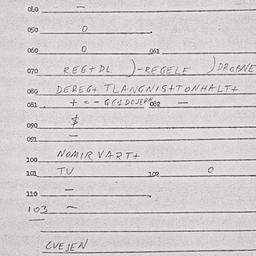 040 –
050 0
060 0 061
070 REG+DL )-REGELF )DROBNE
080 DEREG+ TLANGNIS++TONHALT+
081 + = - 082 –
090 $
091 –
100 NOMIRVART+
101 TU 102 0
110 –
103 –
CVEJEN